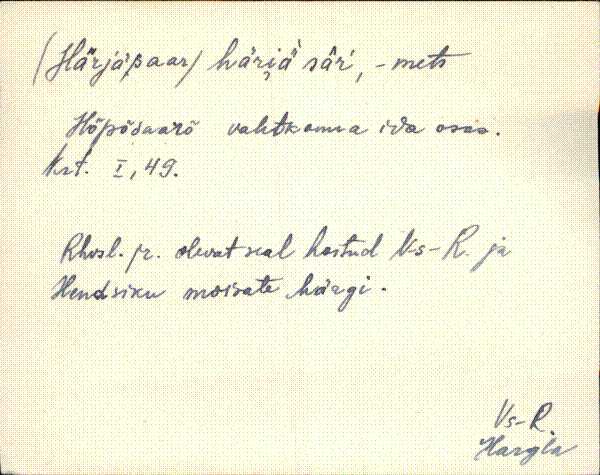 (Härjäpaar) häriä sāŕ, -mets
Hõpõsaarõ vahtkonna ida osas.
Krt. I, 49.
Rhvsl. jr. olevat seal hoitud Vs-R. ja
Hendsiku moisate härgi.
Vs-R.
Hargla